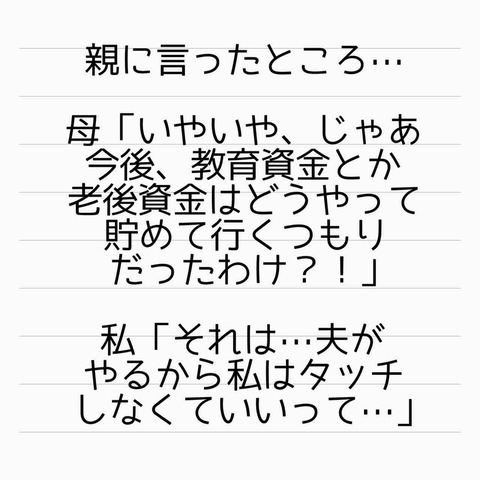 親に言ったところ…
母「いやいや、じゃあ
今後、教育資金とか
老後資金はどうやって
貯めて行くつもり
だったわけ？！」
私「それは…夫が
やるから私はタッチ
しなくていいって…」